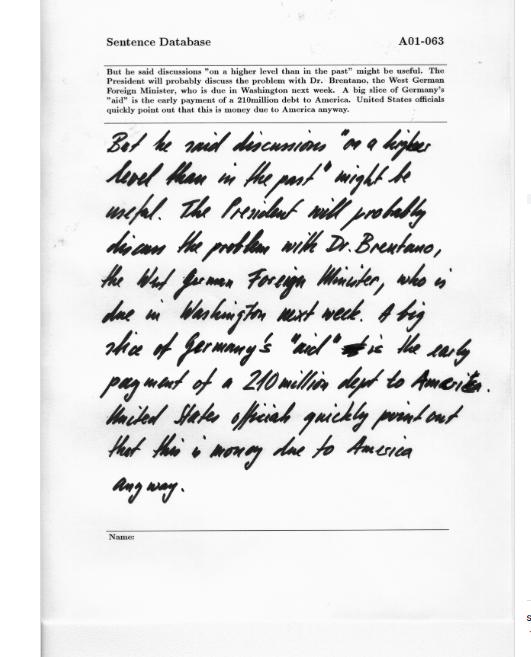 Sentence Database A01-063
But he said discussions "on a higher level than in the past" might be useful. The
President will probably discuss the problem with Dr. Brentano, the West German
Foreign Minister, who is due in Washington next week. A big slice of Germany's
"aid" is the early payment of a 210million debt to America. United States officials
quickly point out that this is money due to America anyway.
But he said discussions "on a higher
level than in the past" might be
useful. The President will probably
discuss the problem with Dr. Brentano,
the West German Foreign Minister, who is
due in Washington next week. A big
slice of Germany's "aid" is the early
payment of a 210 million dept to America.
United States officials quickly point out
that this is money due to America
anyway.
Name: